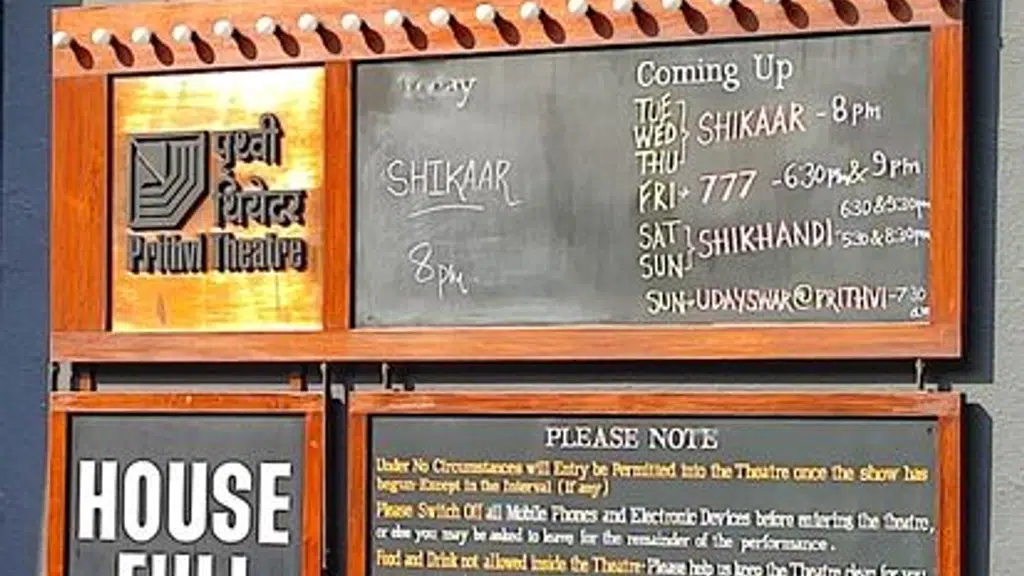 पृथ्वी
थियेटर
Prithvi Theatre
Today
SHIKAAR
8pm
Coming Up
TUE
WED
THU
SHIKAAR - 8pm
FRI 777 - 6.30pm & 9pm
SAT
SUN
SHIKHANDI
6:30 & 9:30pm
5:30 & 8:30pm
SUN - UDAYSWAR@PRITHVI - 7:30
HOUSE
FULL
PLEASE NOTE
Under No Circumstances will Entry be Permitted into the Theatre once the show has
begun-Except in the Interval (if any)
Please Switch Off all Mobile Phones and Electronic Devices before entering the theatre,
or else you may be asked to leave for the remainder of the performance.
Food and Drink not allowed inside the Theatre-Please help us keep the Theatre clean for you